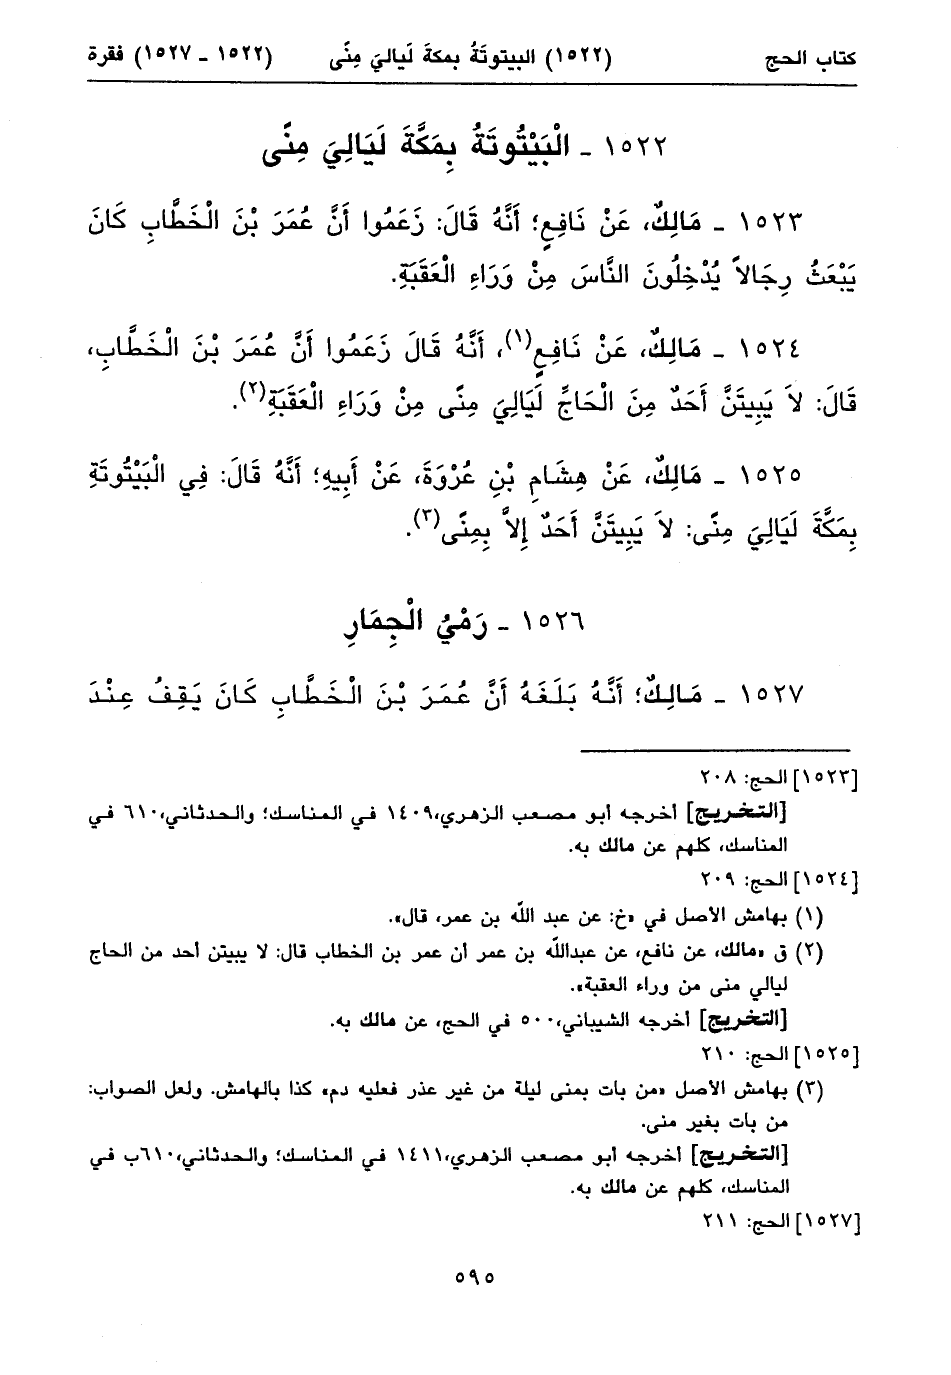 كتاب الحج (١٥٢٢) البيتوتَةُ بمكةَ لَياليَ مِنًى (١٥٢٢ - ١٥٢٧) فقرة
١٥٢٢ - الْبَيْتُوتَةُ بِمَكَّةَ لَيَالِيَ مِنًى
١٥٢٣ - مَالِكٌ، عَنْ نَافِعٍ؛ أَنَّهُ قَالَ: زَعَمُوا أَنَّ عُمَرَ بْنَ الْخَطَّابِ كَانَ
يَبْعَثُ رِجَالاً يُدْخِلُونَ النَّاسَ مِنْ وَرَاءِ الْعَقَبَةِ.
١٥٢٤ - مَالِكٌ، عَنْ نَافِعٍ(١)، أَنَّهُ قَالَ زَعَمُوا أَنَّ عُمَرَ بْنَ الْخَطَّابِ،
قَالَ: لاَ يَبِيتَنَّ أَحَدٌ مِنَ الْحَاجِّ لَيَالِيَ مِنًى مِنْ وَرَاءِ الْعَقَبَةِ(٢).
١٥٢٥ - مَالِكٌ، عَنْ هِشَامِ بْنِ عُرْوَةَ، عَنْ أَبِيهِ؛ أَنَّهُ قَالَ: فِي الْبَيْتُوتَةِ
بِمَكَّةَ لَيَالِيَ مِنًى: لاَ يَبِيتَنَّ أَحَدٌ إِلاَّ بِمِنًى(٣).
١٥٢٦ - رَمْيُ الْجِمَارِ
١٥٢٧ - مَالِكٌ؛ أَنَّهُ بَلَغَهُ أَنَّ عُمَرَ بْنَ الْخَطَّابِ كَانَ يَقِفُ عِنْدَ
[١٥٢٣] الحج: ٢٠٨
[التخريج] أخرجه أبو مصعب الزهري، ١٤٠٩ في المناسك؛ والحدثاني، ٦١٠ في
المناسك، كلهم عن مالك به.
[١٥٢٤] الحج: ٢٠٩
(١) بهامش الأصل في «خ: عن عبد الله بن عمر، قال».
(٢) ق «مالك، عن نافع، عن عبدالله بن عمر أن عمر بن الخطاب قال: لا يبيتن أحد من الحاج
ليالي منى من وراء العقبة».
[التخريج] أخرجه الشيباني، ٥٠٠ في الحج، عن مالك به.
[١٥٢٥] الحج: ٢١٠
(٣) بهامش الأصل «من بات بمنى ليلة من غير عذر فعليه دم» كذا بالهامش. ولعل الصواب:
من بات بغير منى.
[التخريج] أخرجه أبو مصعب الزهري، ١٤١١ في المناسك؛ والحدثاني، ٦١٠ب في
المناسك، كلهم عن مالك به.
[١٥٢٧] الحج: ٢١١
٥٩٥